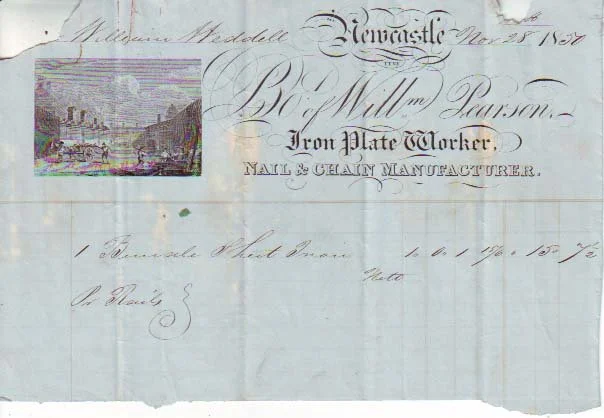 William Weddell Newcastle Nov 28 1850
TYNE
Bot of Willm Pearson.
Iron Plate Worker,
NAIL & CHAIN MANUFACTURER.
1 Bundle Sheet Iron 1 0 1
Nett
Pr Rails